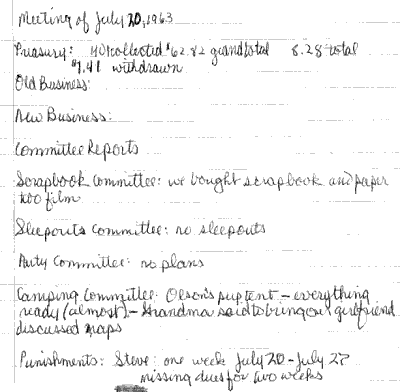 Meeting of July 20, 1963
Treasury: 40¢ collected $62.82 grand total 8.28 total
$1.41 withdrawn
Old Business:
New Business:
Committee Reports
Scrapbook Committee: we bought scrapbook and paper
too film
Sleepouts Committee: no sleepouts
Party Committee: no plans
Camping Committee: Olson's pup tent – everything
ready (almost) – Grandma said to bring our girlfriend
discussed maps
Punishments: Steve: one week July 20 - July 27
missing dues for two weeks